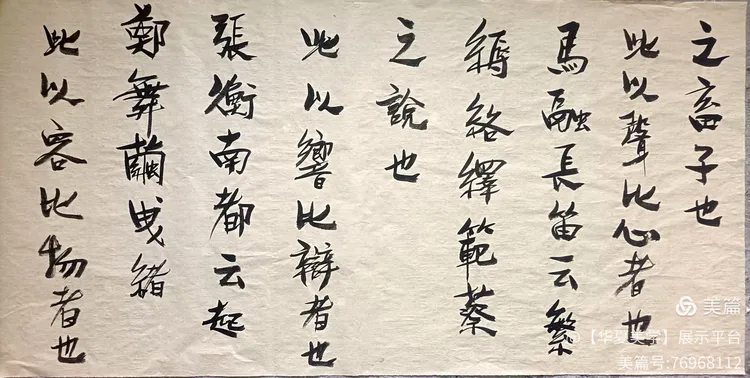 之畜子也
此以聲比心者也
馬融長笛云繁
縟絡繹範蔡
之說也
此以響比辯者也
張衡南都云起
鄭舞繭曳緒
此以容比物者也
美篇
@【华夏美学】展示平台
美篇号:76968112